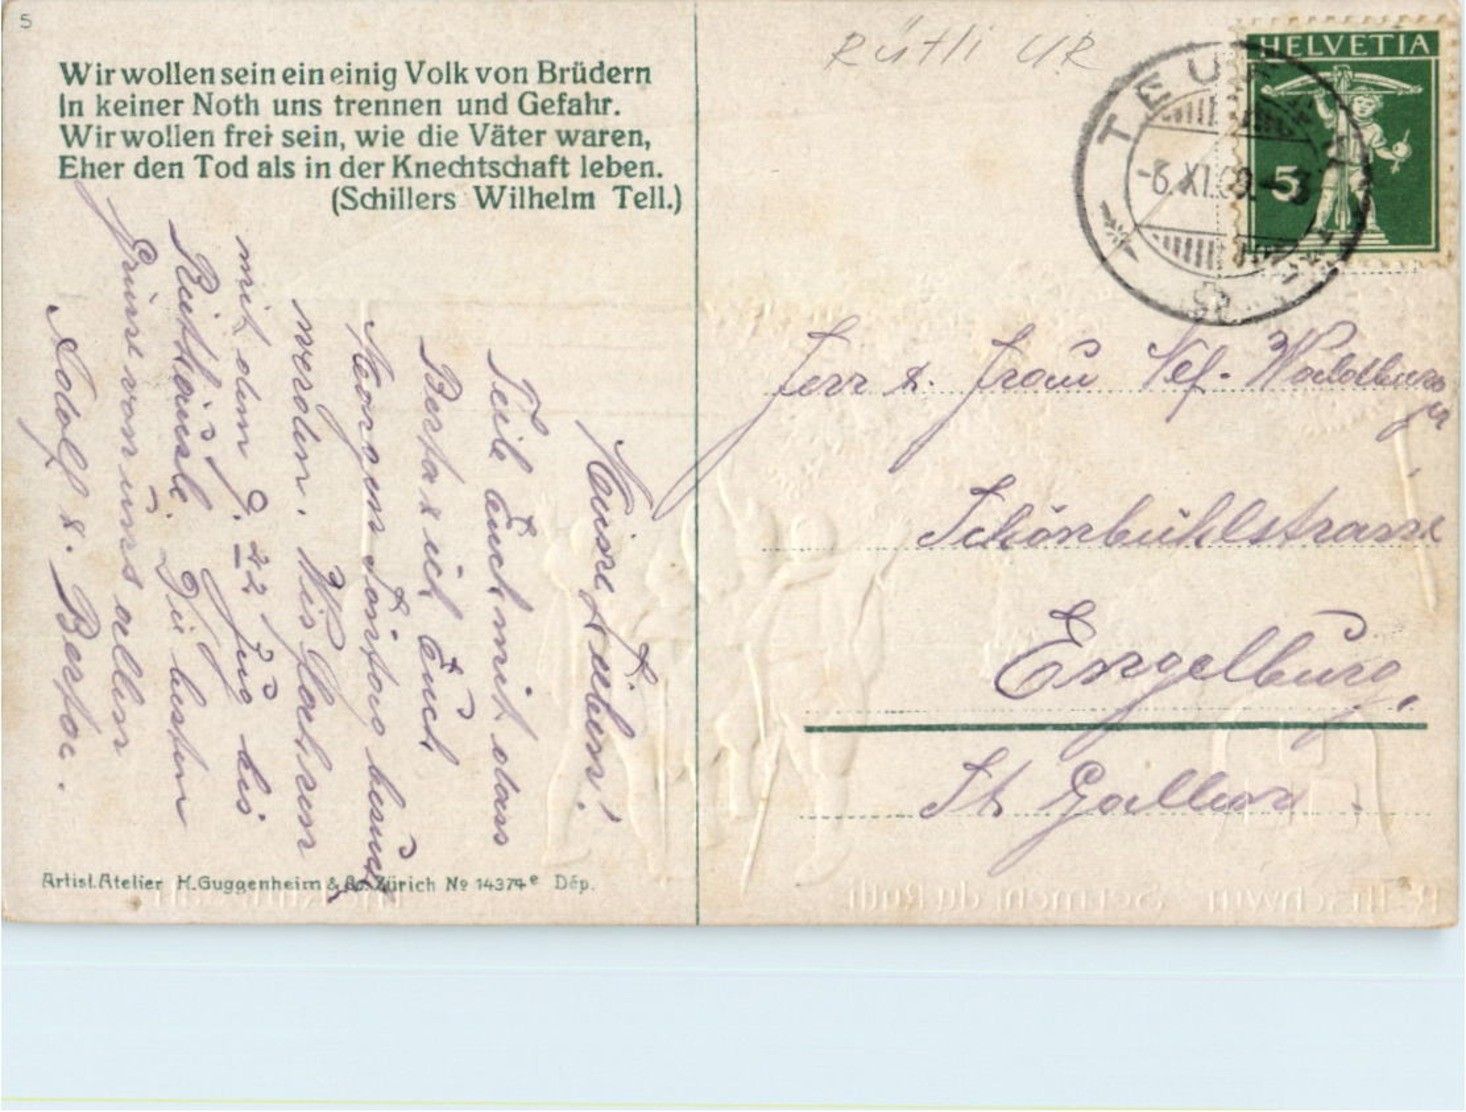 5
Wir wollen sein ein einig Volk von Brüdern
In keiner Noth uns trennen und Gefahr.
Wir wollen frei sein, wie die Väter waren,
Eher den Tod als in der Knechtschaft leben.
(Schillers Wilhelm Tell.)
Rütli UR
HELVETIA
5
TEUFEN
-6.XI.09.-
Meine Lieben!
Teile Euch mit dass
Berta & ich Euch
Morgen Sontag besuch
werden. Wir
mit dem 9.22 Zug bis
Die besten
Grüsse von uns allen
Adolf & Berta.
Herr & Frau Nef-Waldburger
Schönbühlstrasse
Engelburg.
St Gallen.
Artist. Atelier H. Guggenheim & Co. Zürich No 14374e Dép.
Rütlischwur Serment du Rütli